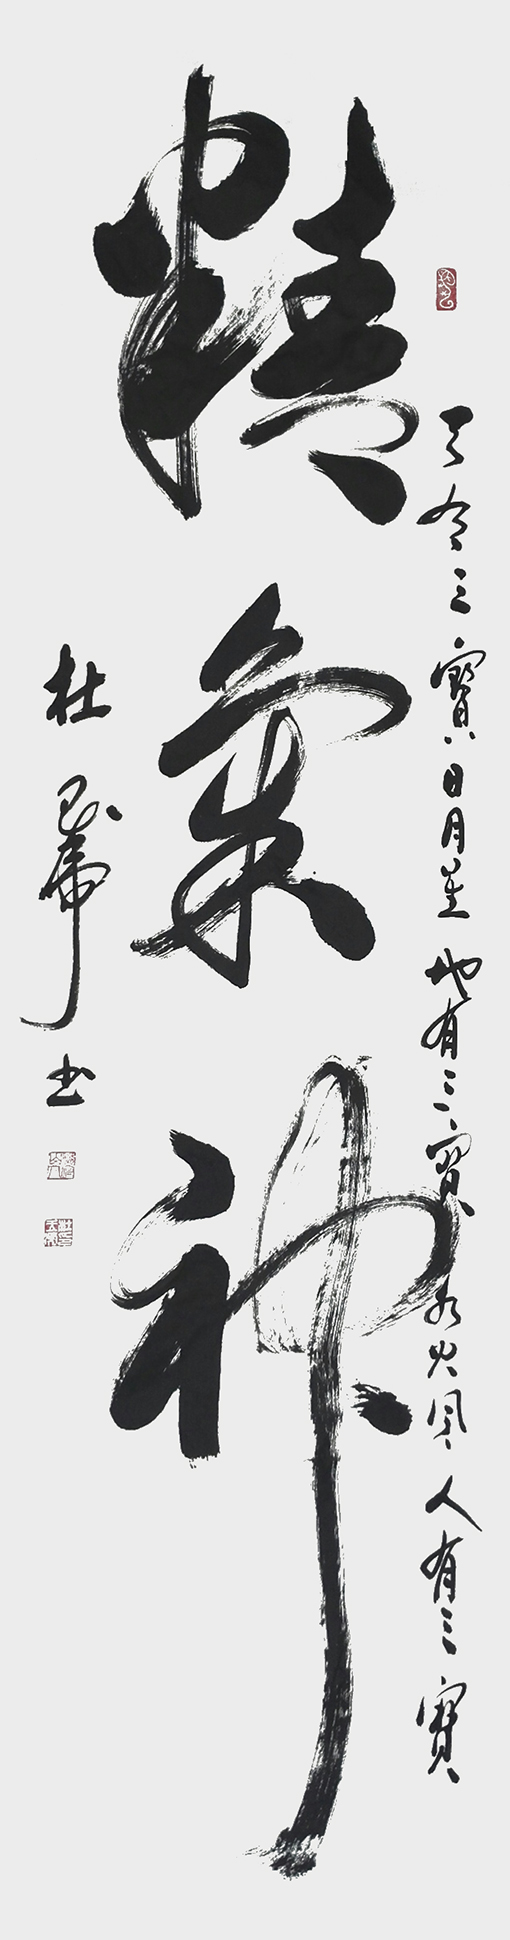 天有三寶日月星地有三寶水火風人有三寶
精氣神
杜虎书